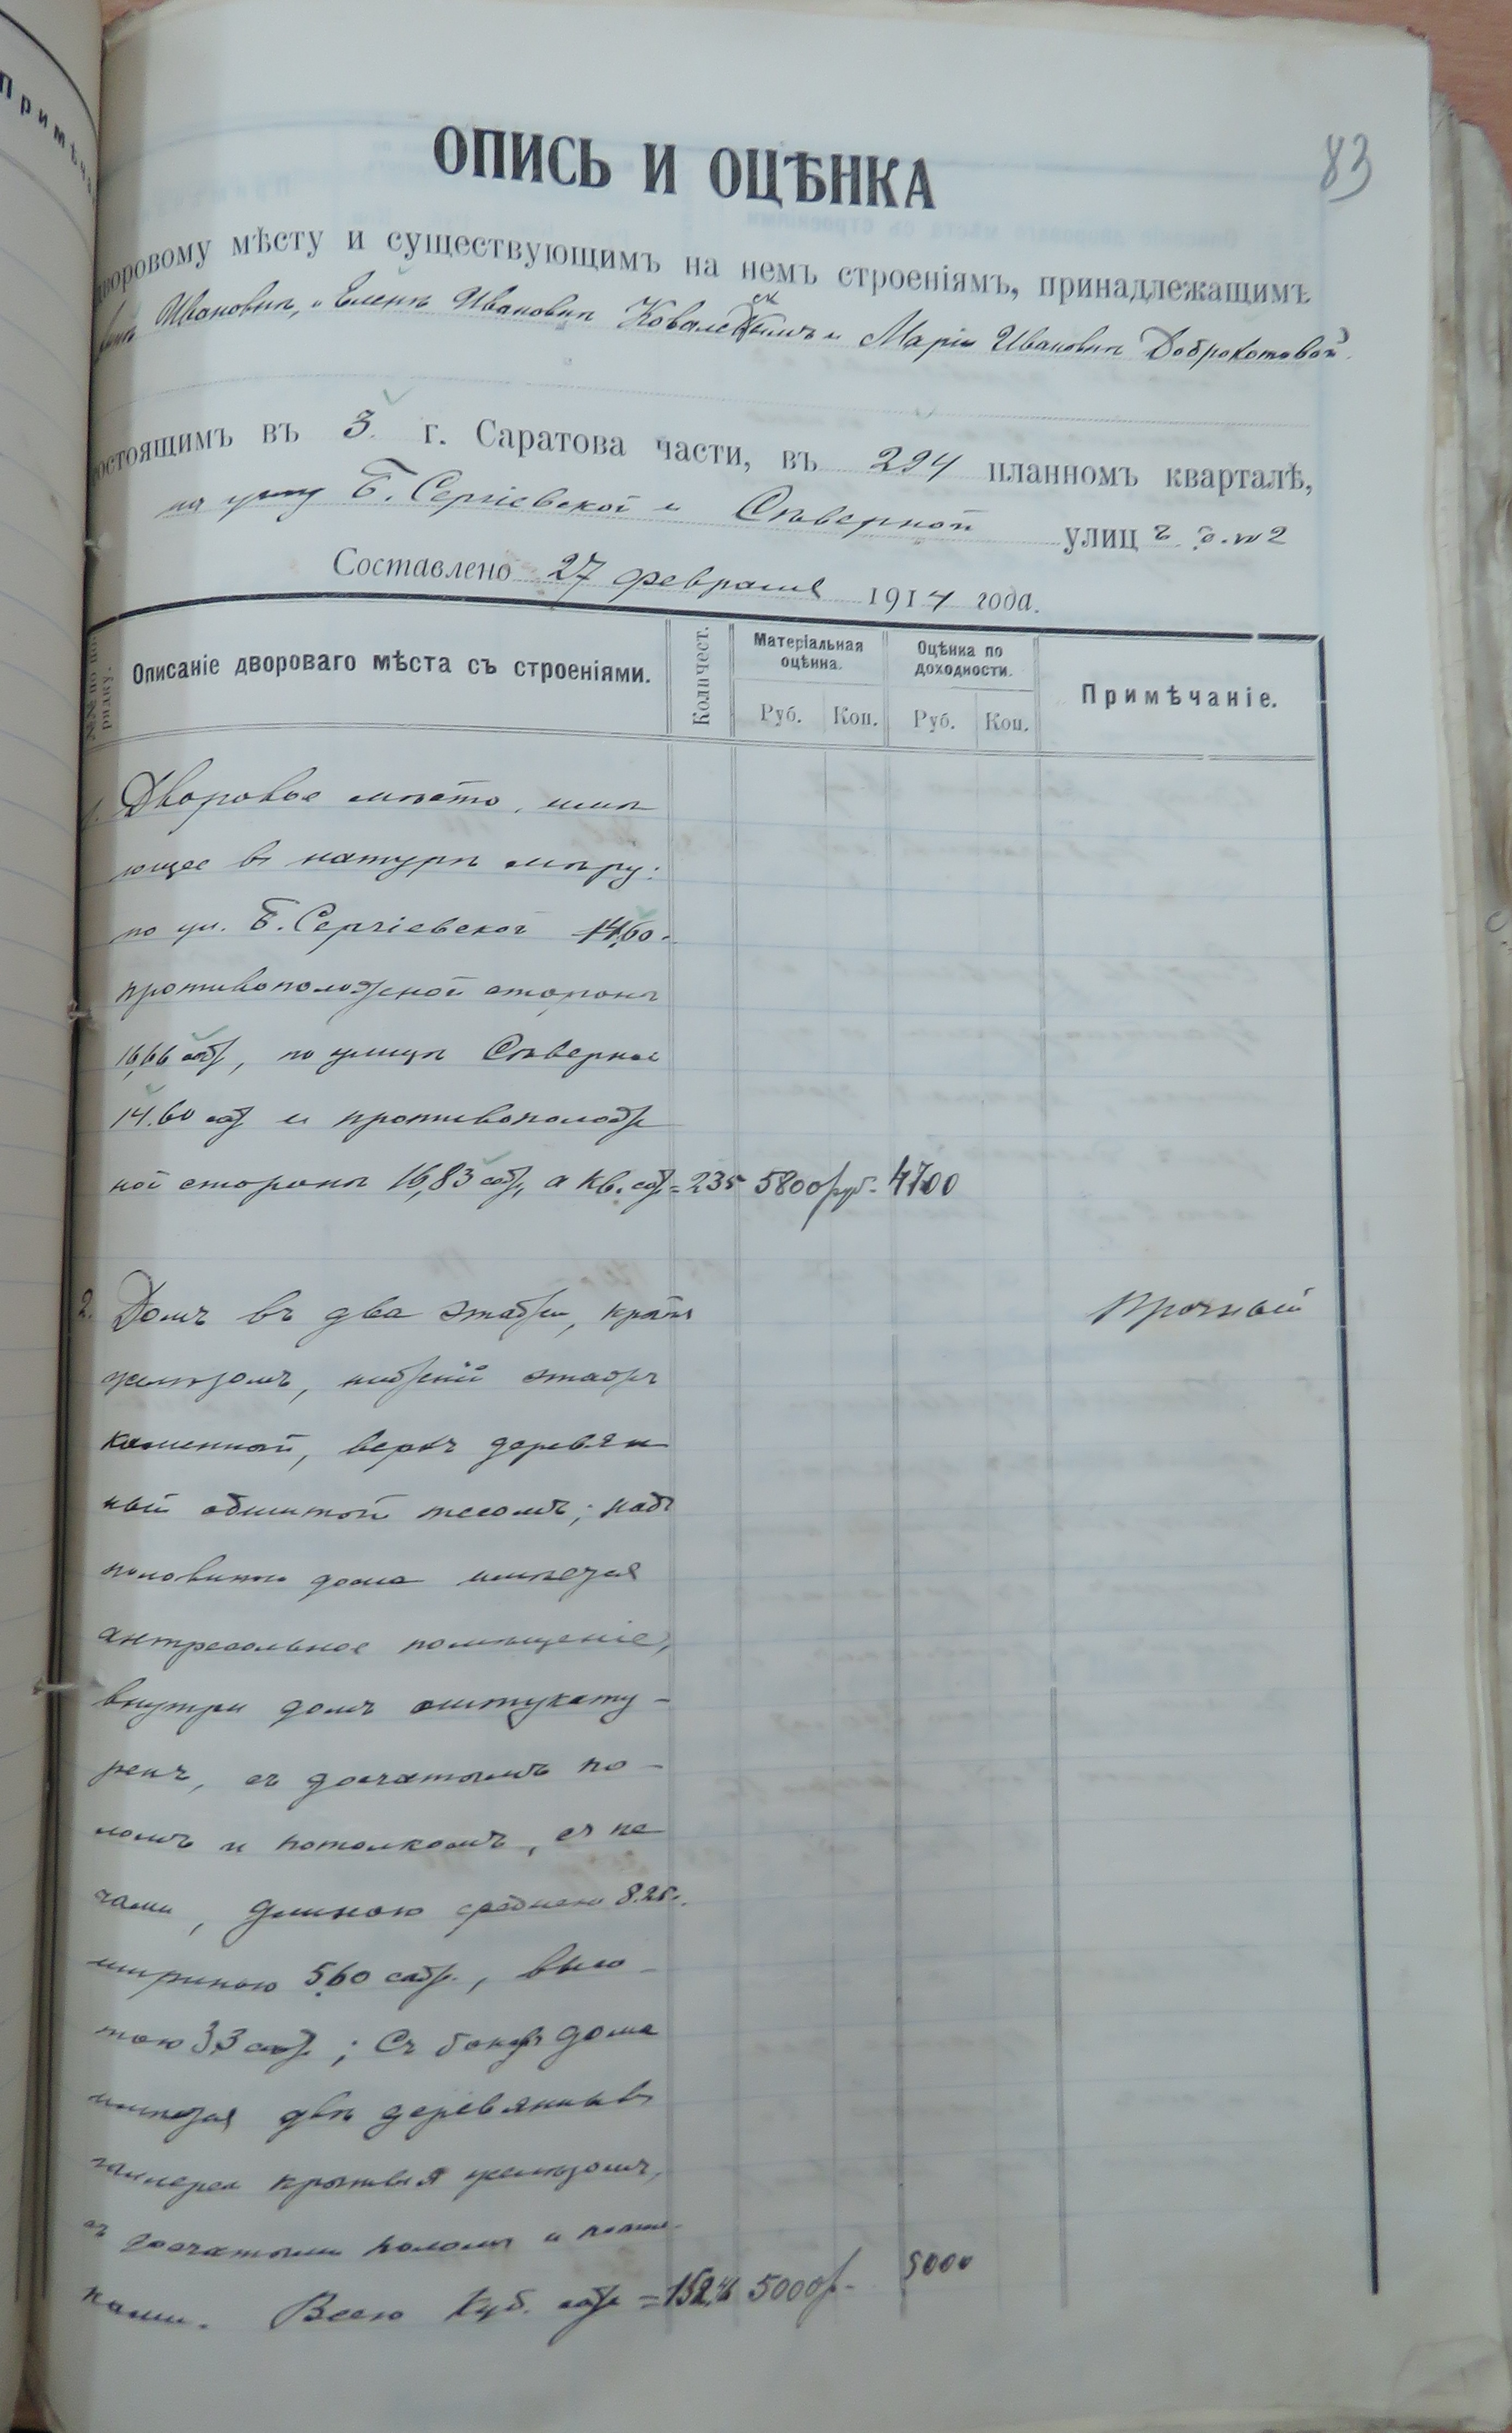 Примѣча
83
ОПИСЬ И ОЦѢНКА
дворовому мѣсту и существующимъ на немъ строеніямъ, принадлежащимъ
Ивановнѣ, и Еленѣ Ивановнѣ Ковалевскимъ и Маріи Ивановнѣ Доброхотовой.
состоящимъ въ 3. г. Саратова части, въ 294 планномъ кварталѣ,
на углу Б. Сергіевской и Сѣверной улиц
Составлено 27 февраля 1914 года.
№№ по по-рядку.
Описаніе двороваго мѣста съ строеніями.
Количест.
Матеріальная оцѣнка.
Оцѣнка по доходности.
Примѣчаніе.
Руб. Коп. Руб. Коп.
1. Дворовое мѣсто, имѣ
ющее въ натурѣ мѣру:
по ул. Б. Сергіевской 14,60.
противоположной сторонѣ
16,66 саж, по улицѣ Сѣверной
14.60 саж и противополож
ной сторонѣ 16,83 саж, а кв. саж = 235 5800 руб. 4700
2. Домъ въ два этажа, крытъ Прочный
желѣзомъ, нижній этажъ
каменной, верхъ деревян
ный обшитой тесомъ; надъ
половиною дома имѣется
антресольное помѣщеніе,
внутри домъ оштукату-
ренъ, съ досчатымъ по-
ломъ и потолкомъ, съ пе
чами, длиною среднею 8.25с.
шириною 5,60 саж., высо-
тою 3,3 саж; Съ боковъ дома
имѣются двѣ деревянныя
галлереи крытыя желѣзомъ,
съ досчатыми полами и потол-
ками. Всего куб. саж = 152,46 5000р- 5000